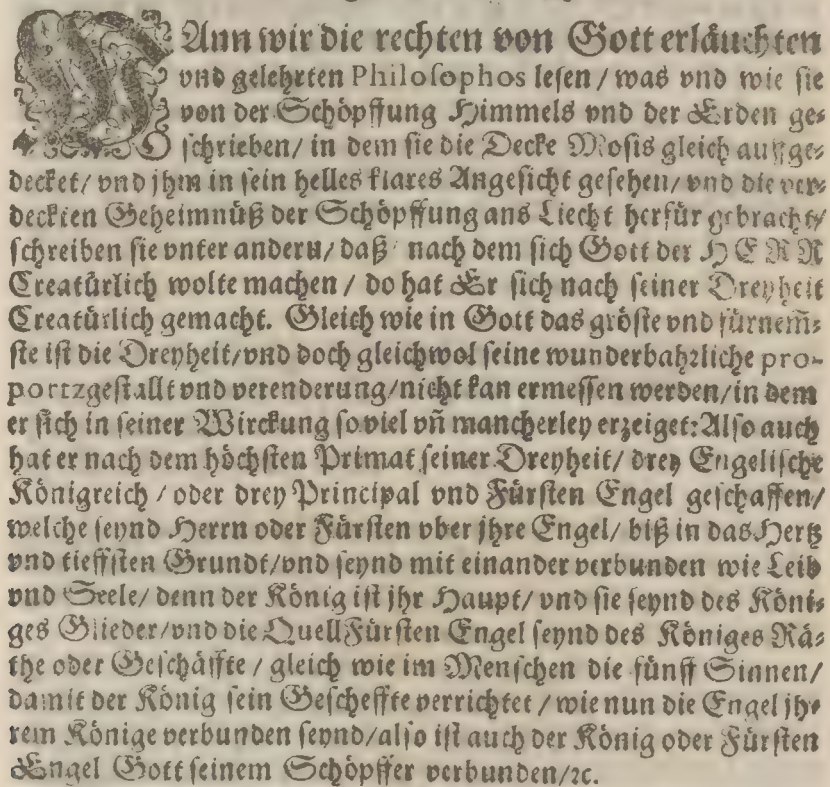 WAnn wir die rechten von Gott erläuchten
vnd gelehrten Philosophos lesen / was vnd wie sie
von der Schöpffung Himmels vnd der Erden ge⸗
schrieben/ in dem sie die Decke Mosis gleich auffge⸗
decket/ vnd jhm in sein helles klares Angesicht gesehen/ vnd die ver⸗
deckten Geheimnüß der Schöpffung ans Liecht herfür gebracht/
schreiben sie vnter andern/ daß nach dem sich Gott der HERR
Creatürlich wolte machen / do hat Er sich nach seiner Dreyheit
Creatürlich gemacht. Gleich wie in Gott das gröste vnd fürnem̃⸗
ste ist die Dreyheit/ vnd doch gleichwol seine wunderbahrliche pro-
portzgestallt vnd verenderung/ nicht kan ermessen werden/ in dem
er sich in seiner Wirckung soviel vñ mancherley erzeiget: Also auch
hat er nach dem höchsten Primat seiner Dreyheit/ drey Engelische
Königreich / oder drey Principal vnd Fürsten Engel geschaffen/
welche seynd Herrn oder Fürsten vber jhre Engel/ biß in das Hertz
vnd tieffsten Grundt/ vnd seynd mit einander verbunden wie Leib
vnd Seele/ denn der König ist jhr Haupt/ vnd sie seynd des Köni⸗
ges Glieder/ vnd die Quell Fürsten Engel seynd des Königes Rä⸗
the oder Geschäffte / gleich wie im Menschen die fünff Sinnen/
damit der König sein Gescheffte verrichtet / wie nun die Engel jh⸗
rem Könige verbunden seynd/ also ist auch der König oder Fürsten
Engel Gott seinem Schöpffer verbunden/ ꝛc.